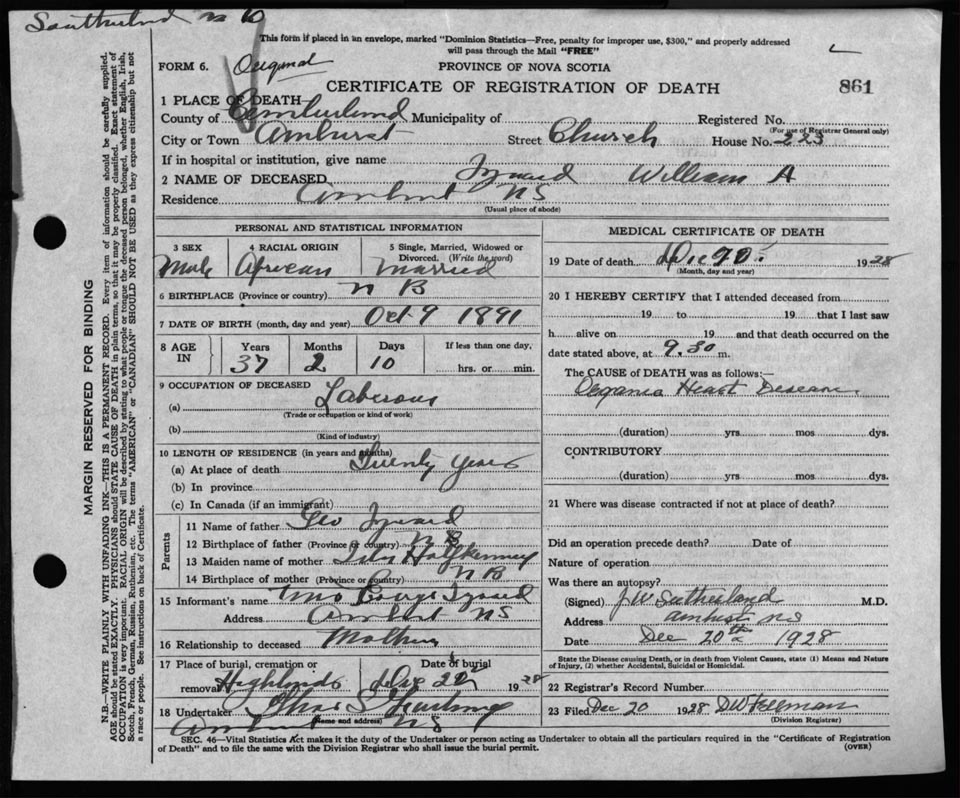 Sutherland
This form if placed in an envelope, marked "Dominion Statistics—Free, penalty for improper use, $300," and properly addressed
will pass through the Mail "FREE"
FORM 6. Original PROVINCE OF NOVA SCOTIA
CERTIFICATE OF REGISTRATION OF DEATH 861
1 PLACE OF DEATH—
County of Cumberland Municipality of Registered No.
(For use of Registrar General only)
City or Town Amherst Street Church House No. 223
If in hospital or institution, give name
2 NAME OF DECEASED William A
Residence Amherst NS
(Usual place of abode)
PERSONAL AND STATISTICAL INFORMATION
3 SEX 4 RACIAL ORIGIN 5 Single, Married, Widowed or Divorced. (Write the word)
Male African Married
6 BIRTHPLACE (Province or country) N B
7 DATE OF BIRTH (month, day and year) Oct 9 1891
8 AGE IN Years Months Days If less than one day,
37 2 10 hrs. or min.
9 OCCUPATION OF DECEASED
(a) Laborous
(Trade or occupation or kind of work)
(b)
(Kind of industry)
10 LENGTH OF RESIDENCE (in years and months)
(a) At place of death Twenty years
(b) In province
(c) In Canada (if an immigrant)
Parents
11 Name of father Geo
12 Birthplace of father (Province or country) N B
13 Maiden name of mother
14 Birthplace of mother (Province or country) N B
15 Informant's name Mrs George
Address Amherst NS
16 Relationship to deceased Mother
17 Place of burial, cremation or Date of burial
removal Highland Dec 1928
18 Undertaker Chas S
(name and address) NS
MEDICAL CERTIFICATE OF DEATH
19 Date of death Dec 1928
(Month, day and year)
20 I HEREBY CERTIFY that I attended deceased from
19 to 19 that I last saw
h alive on 19 and that death occurred on the
date stated above, at 9.30 m.
The CAUSE of DEATH was as follows:—
Organic Heart Disease
(duration) yrs mos dys.
CONTRIBUTORY
(duration) yrs mos dys.
21 Where was disease contracted if not at place of death?
Did an operation precede death? Date of
Nature of operation
Was there an autopsy?
(Signed) J W Sutherland M.D.
Address Amherst NS
Date Dec 20th 1928
State the Disease causing Death, or in death from Violent Causes, state (1) Means and Nature
of Injury, (2) whether Accidental, Suicidal or Homicidal.
22 Registrar's Record Number
23 Filed Dec 20 1928
(Division Registrar)
SEC. 46—Vital Statistics Act makes it the duty of the Undertaker or person acting as Undertaker to obtain all the particulars required in the "Certificate of Registration
of Death" and to file the same with the Division Registrar who shall issue the burial permit. (OVER)
MARGIN RESERVED FOR BINDING
N.B.—WRITE PLAINLY WITH UNFADING INK—THIS IS A PERMANENT RECORD. Every item of information should be carefully supplied.
AGE should be stated EXACTLY. PHYSICIANS should STATE CAUSE OF DEATH in plain terms, so that it may be properly classified. Exact statement of
OCCUPATION is very important. RACIAL ORIGIN will be described by stating to what people or tongue the deceased person belonged, whether English, Irish,
Scotch, French, German, Russian, Ruthenian, etc. The terms "AMERICAN" or "CANADIAN" SHOULD NOT BE USED as they express citizenship but not
a race or people. See instructions on back of Certificate.